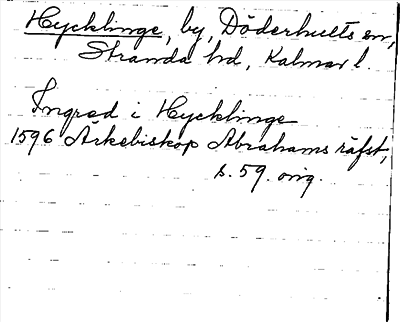 Hycklinge, by, Döderhults sn,
Stranda hd, Kalmar l.
Ingrad i Hycklinge
1596 Ärkebiskop Abrahams räfst,
s. 59. orig.